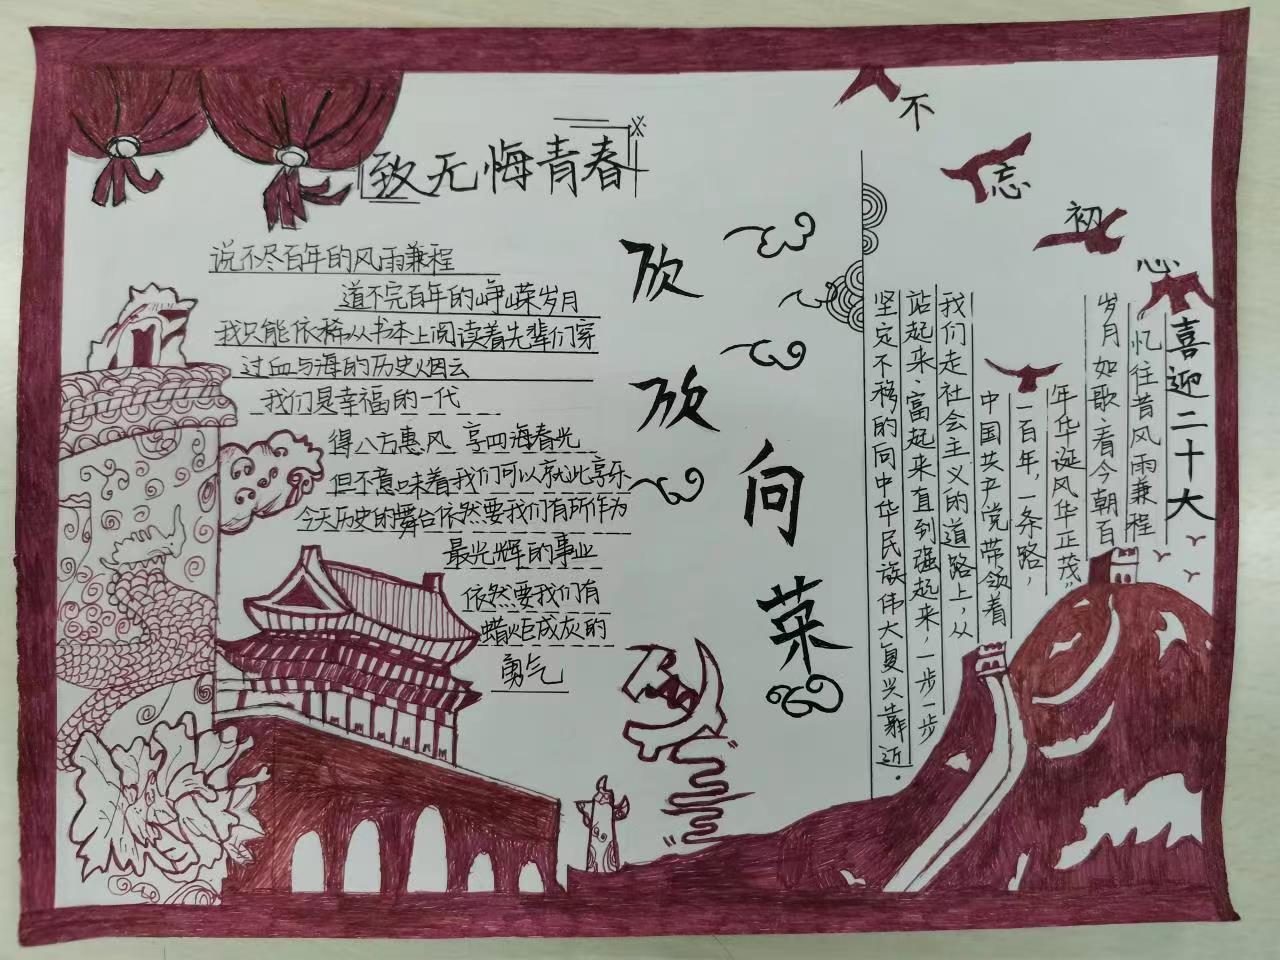 致无悔青春
说不尽百年的风雨兼程
道不完百年的峥嵘岁月
我只能依稀从书本上阅读着先辈们穿
过血与海的历史烟云
我们是幸福的一代
得八方惠风 享四海春光
但不意味着我们可以就此享乐
今天历史的舞台依然要我们有所作为
最光辉的事业
依然要我们有
蜡炬成灰的
勇气
欣欣向荣
不忘初心
喜迎二十大
“忆往昔风雨兼程
岁月如歌,看今朝百
年华诞风华正茂”
一百年,一条路,
中国共产党带领着
我们走社会主义的道路上,从
站起来,富起来直到强起来,一步一步
坚定不移的向中华民族伟大复兴靠近.